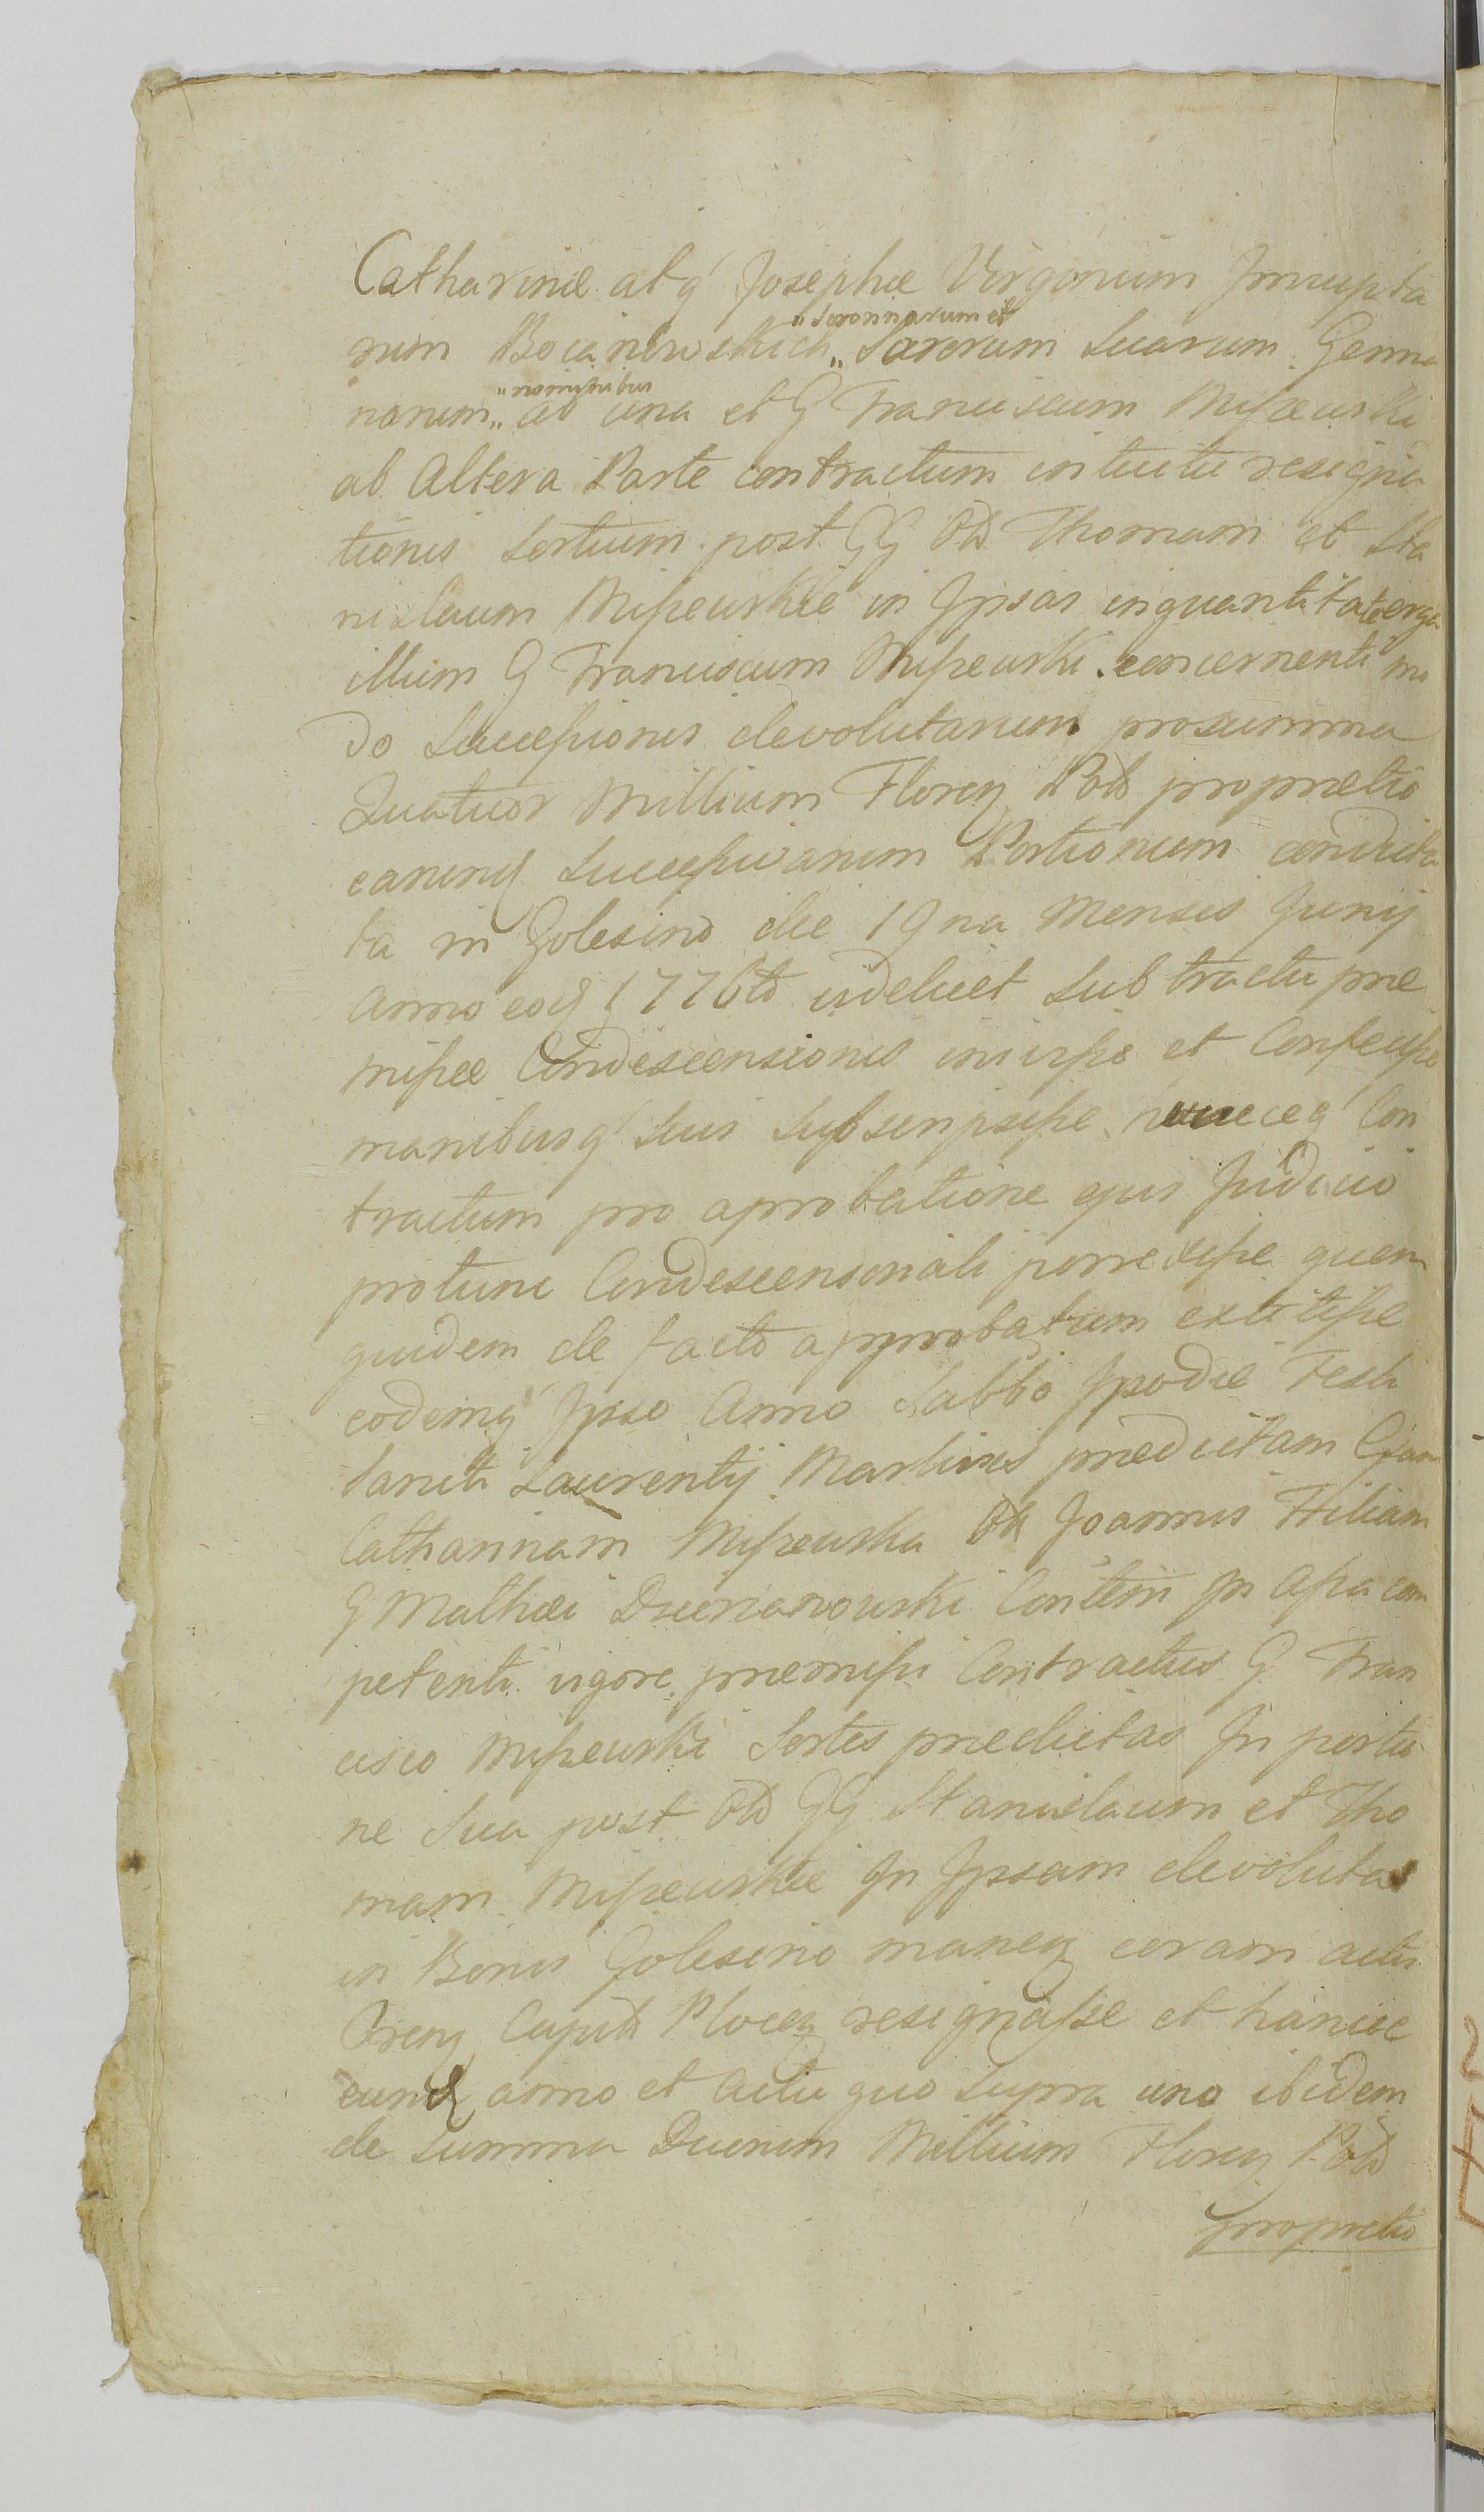 Catharinæ atq́ Josephæ Virgorum Innupta
rum Bocianowskich „ Sororum Suarum Germa
„ Sworumarum et
narum „ ab una et G Franciscum Miszewski
„ nominibus
ab Altera Parte contractum intuitu resigna
tionis Sortium post GG Old Thomam et Sta
nislaum Miszewskie in Ipsas in quantitate erga
illum G Franciscum Miszewski concernenti mo
do Successionis devolutarum pro summa
Quatuor Millium Floren Pold pro pretio
earund Successivarum Portionum condicta
ta in Golesino die 19na Mensis Junij
Anno eod 1776to videlicet Sub tractu præ
missæ Condescensionis inivisse et Confecisse
manibusq́ Suis Subscripsisse Con
tractum pro aprobatione ejus Judicio
protunc Condescensoriali porrexisse quem
quidem de facto approbatum extitisse
eodemq́ Ipso Anno Sabbo Ipodie Festi
Sancti Laurentij Martiris prædictam Gsam
Catharinam Miszewska Old Joannis Filiam
G Mathæi Dzierzanowski Contém In Assa com
petenti vigore præmissi Contractus G Fran
cisco Miszewski Sortes prædictas In portio
ne Sua post Old GG Stanislaum et Tho
mam Miszewskie In Ipsam devolutas
in Bonis Golesino manen coram actis
Cren Capitli Plocen resignasse et hancce
eund anno et Actu quo Supra una ibidem
de Summa Duorum Millium Floren Pold
pro pretio